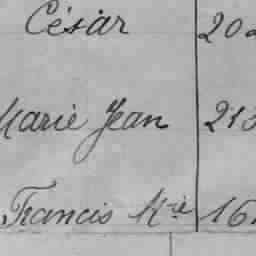 César 202
Marie Jean 213
Francis Mie 161